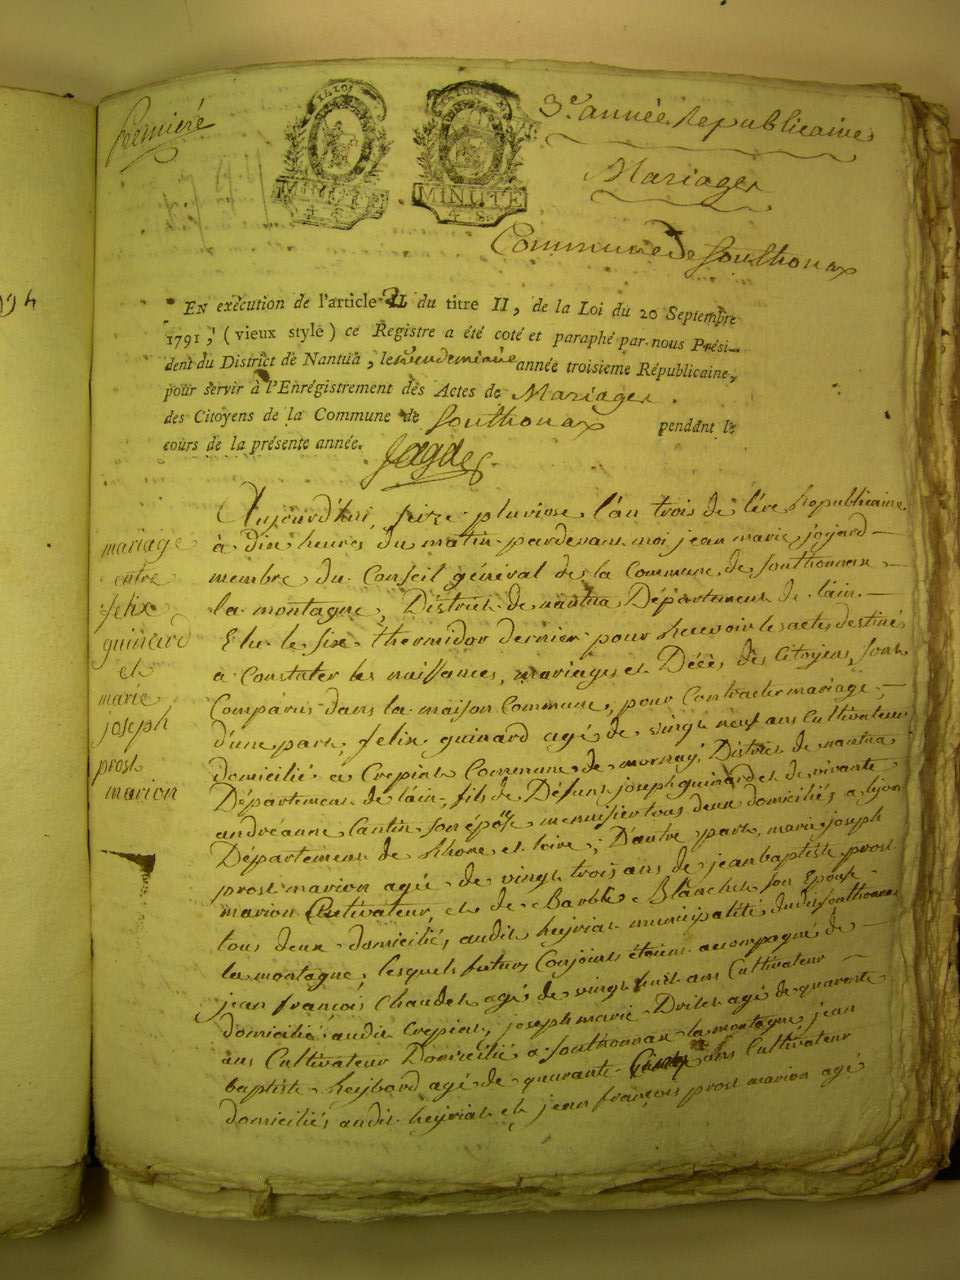 Premiere
MINUTE
MINUTE
4 S.
3e. année Republicaine
Mariages
Commune de Southonax
En exécution de l'article II du titre II, de la Loi du 20 Septembre
1791, (vieux style) ce Registre a été coté et paraphé par nous Prési-
dent du District de Nantua, le vendemiaire année troisieme Républicaine,
pour servir à l'Enrégistrement des Actes de Mariages
des Citoyens de la Commune de Southonax pendant le
cours de la présente année.
mariage
entre
felix
guinard
et
marie
joseph
prost
marion
Aujourd'hui, seize pluviose l'an trois de l'ère Republicaine
à dix heures du matin pardevant moi jean marie joyard
membre du Conseil général de la Commune de Southonnax
la montagne, District de nantua Département de l'ain
Elu le six thermidor dernier pour Recevoir les actes destinés
a Constater les naissances, mariages et Décès des Citoyens, sont
Comparus dans la maison Commune, pour Contracter mariage
d'une part, felix guinard agé de vingt neuf ans Cultivateur
domicilié a Crepiat Commune de mornay, District de nantua
Département de l'ain, fils de Défunt joseph guinard et de vivante
andréanne Cantin son épouse menuisier tous deux domiciliés a lyon
Département de Rhone et loire, D'autre part, marie joseph
prost marion agée de vingt trois ans de jean baptiste prost
marion Cultivateur, et de Barbe Blanchet son Epouse
tous deux domiciliés audit heyriat municipalité dudit Southonnax
la montagne, lesquels futurs Conjoints étoient accompagné de
jean françois Chaudet agé de vingt huit ans Cultivateur
domicilié audit Crepiat, joseph marie Drilet agé de quarante
ans Cultivateur Domicilié a Southonnax la montagne jean
baptiste heybord agé de quarante Cinq ans Cultivateur
domiciliés audit heyriat et jean françois prost marion agé